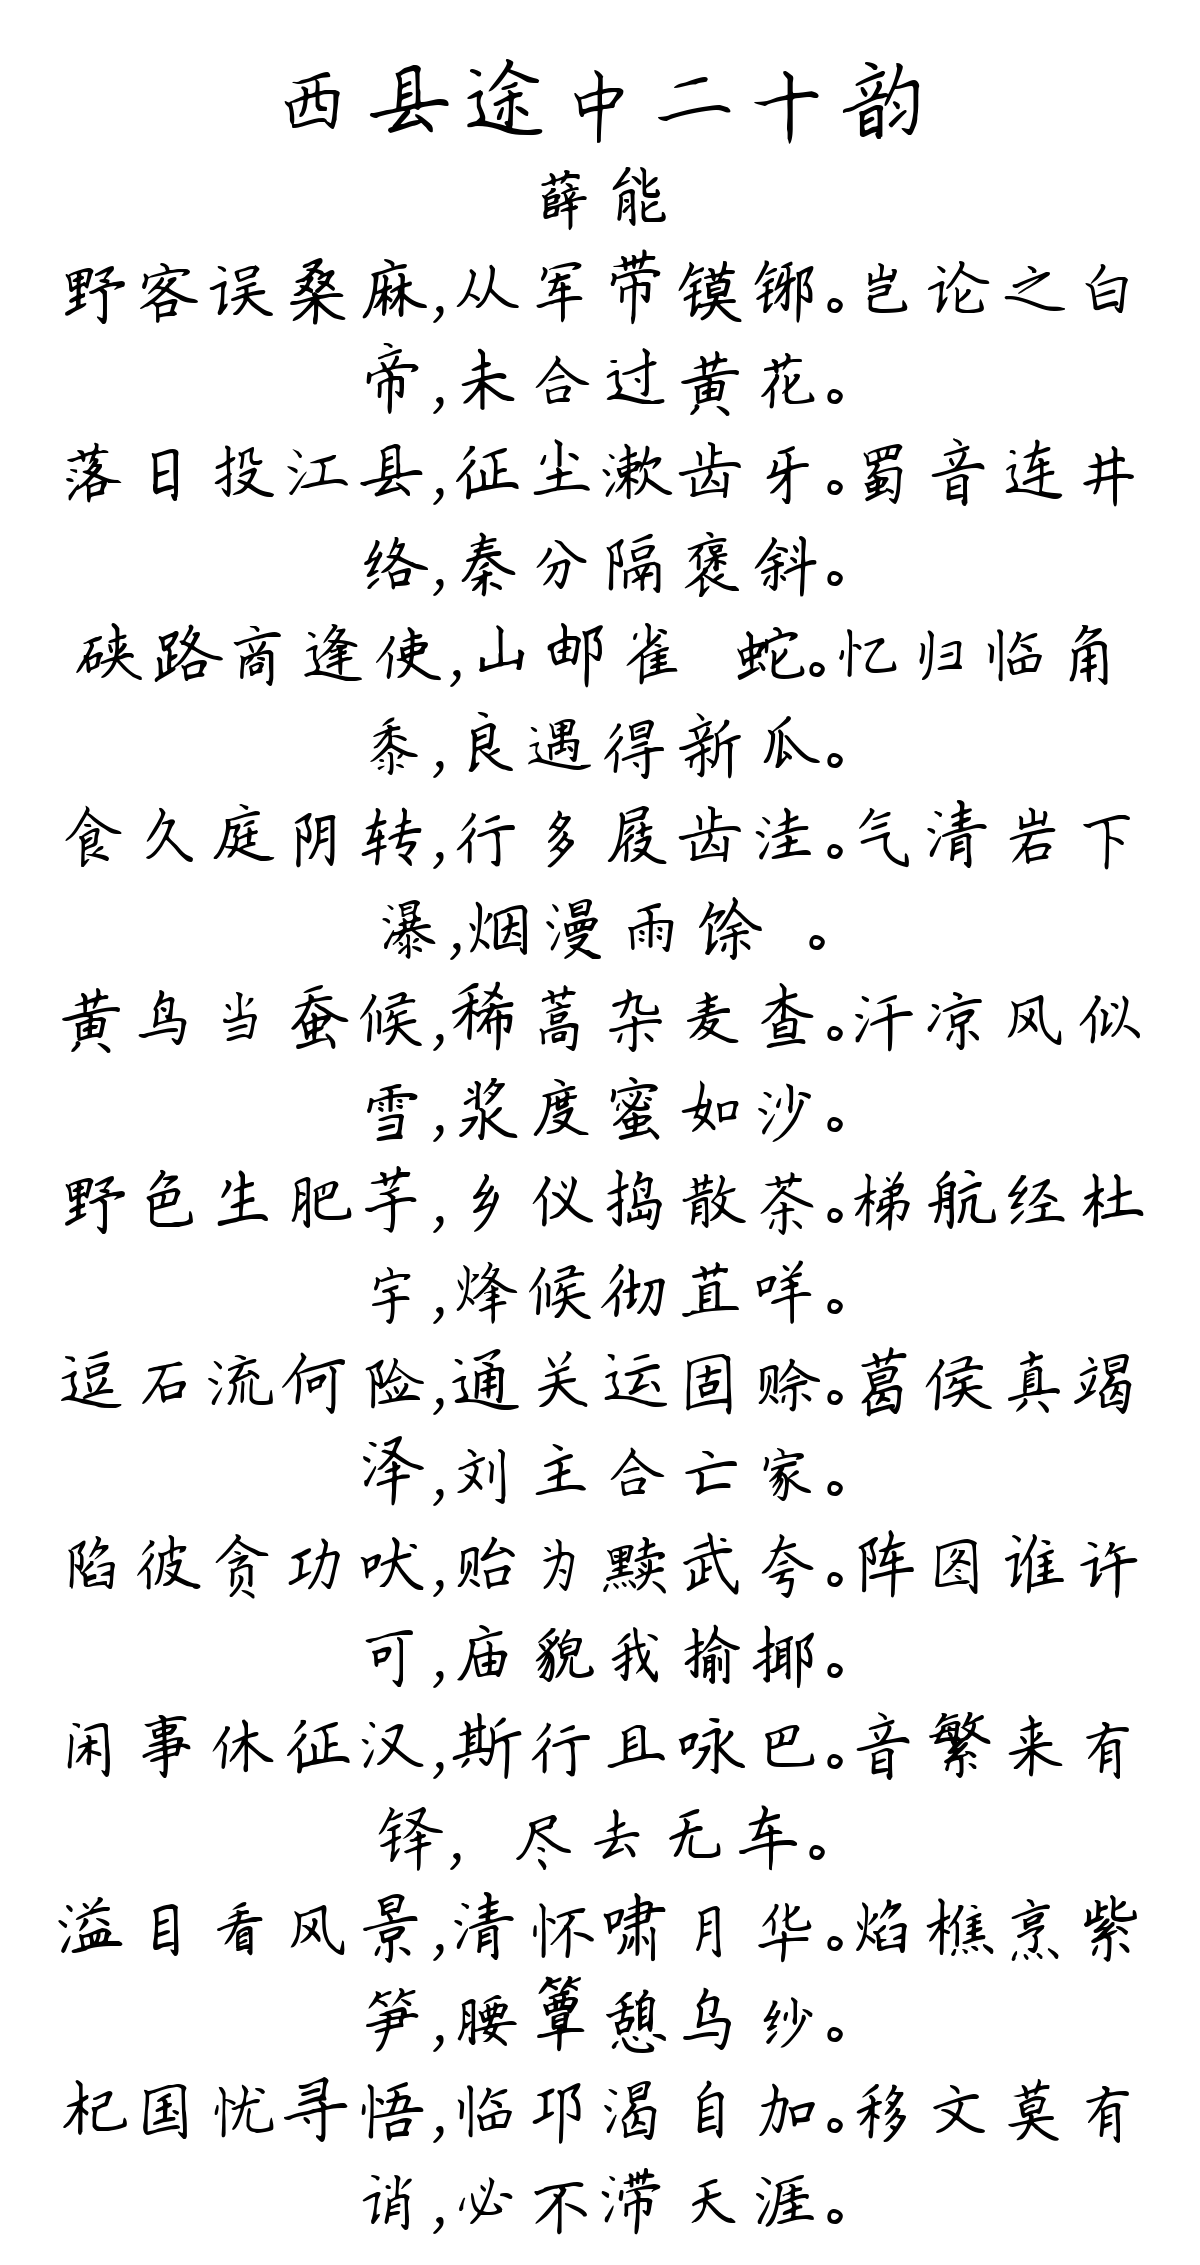 西县途中二十韵
薛能
野客误桑麻,从军带镆铘。岂论之白
帝,未合过黄花。
落日投江县,征尘漱齿牙。蜀音连井
络,秦分隔褒斜。
硖路商逢使,山邮雀 蛇。忆归临角
黍,良遇得新瓜。
食久庭阴转,行多屐齿洼。气清岩下
瀑,烟漫雨馀 。
黄鸟当蚕候,稀蒿杂麦查。汗凉风似
雪,浆度蜜如沙。
野色生肥芋,乡仪捣散茶。梯航经杜
宇,烽候彻苴咩。
逗石流何险,通关运固赊。葛侯真竭
泽,刘主合亡家。
陷彼贪功吠,贻为黩武夸。阵图谁许
可,庙貌我揄揶。
闲事休征汉,斯行且咏巴。音繁来有
铎, 尽去无车。
溢目看风景,清怀啸月华。焰樵烹紫
笋,腰簟憩乌纱。
杞国忧寻悟,临邛渴自加。移文莫有
诮,必不滞天涯。